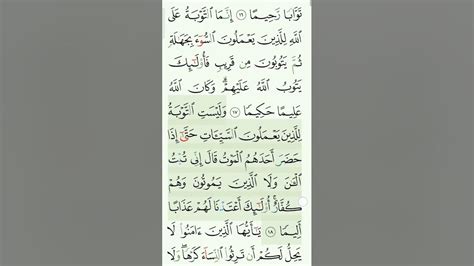 تَوَّابًا رَّحِيمًا ١٦ إِنَّمَا التَّوْبَةُ عَلَى
اللَّهِ لِلَّذِينَ يَعْمَلُونَ السُّوءَ بِجَهَٰلَةٍ
ثُمَّ يَتُوبُونَ مِن قَرِيبٍ فَأُو۟لَٰٓئِكَ
يَتُوبُ اللَّهُ عَلَيْهِمْ ۗ وَكَانَ اللَّهُ
عَلِيمًا حَكِيمًا ١٧ وَلَيْسَتِ التَّوْبَةُ
لِلَّذِينَ يَعْمَلُونَ السَّيِّـَٔاتِ حَتَّىٰٓ إِذَا
حَضَرَ أَحَدَهُمُ الْمَوْتُ قَالَ إِنِّى تُبْتُ
الْـَٰٔنَ وَلَا الَّذِينَ يَمُوتُونَ وَهُمْ
كُفَّارٌ ۚ أُو۟لَٰٓئِكَ أَعْتَدْنَا لَهُمْ عَذَابًا
أَلِيمًا ١٨ يَٰٓأَيُّهَا الَّذِينَ ءَامَنُوا۟ لَا
يَحِلُّ لَكُمْ أَن تَرِثُوا۟ النِّسَآءَ كَرْهًا ۖ وَلَا